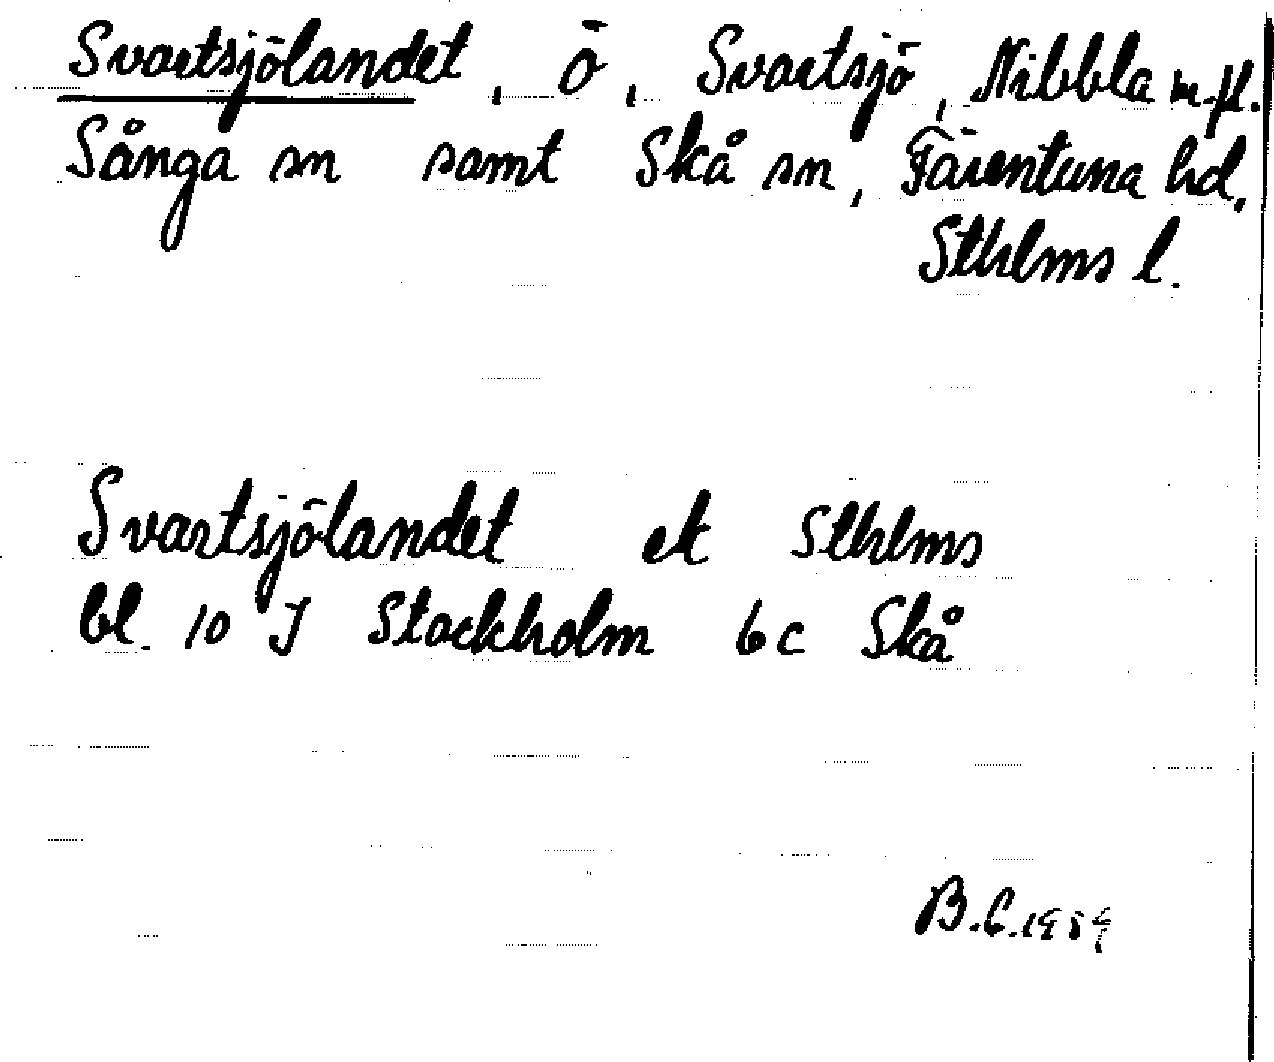 Svartsjölandet, ö, Svartsjö, Nibbla m.fl.
Sånga sn samt Skå sn, Färentuna hd,
Sthlms l.
Svartsjölandet ek Sthlms
bl. 10 I Stockholm 6c Skå
B.C.1989